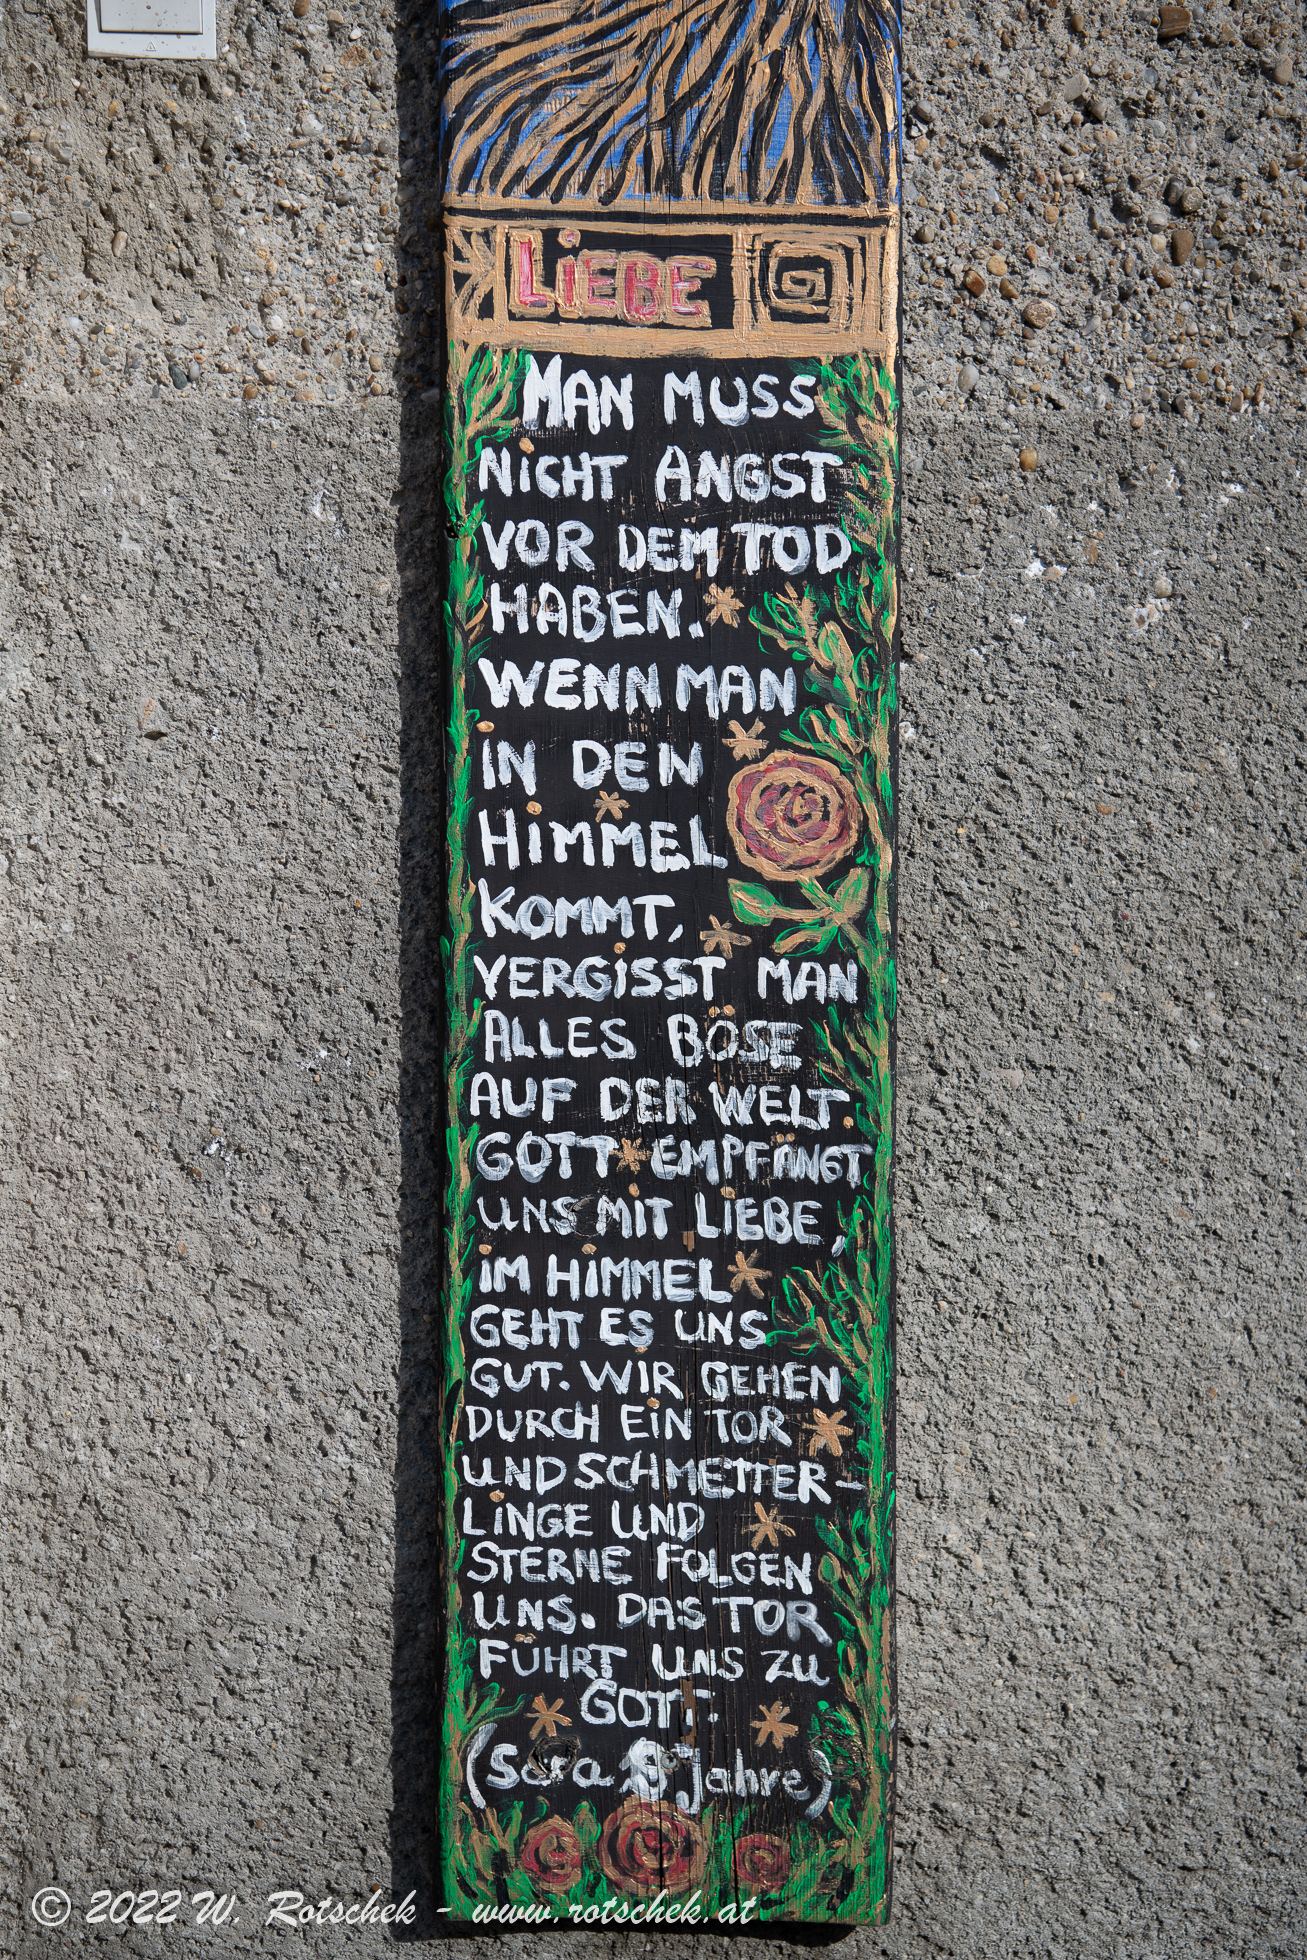 LiEBE
MAN MUSS
NiCHT ANGST
VOR DEM TOD
HABEN.
WENN MAN
iN DEN
HiMMEL
KOMMT,
VERGiSST MAN
ALLES BÖSE
AUF DER WELT.
GOTT EMPFÄNGT
UNS MiT LiEBE,
iM HiMMEL
GEHT ES UNS
GUT. WiR GEHEN
DURCH EiN TOR
UND SCHMETTER-
LiNGE UND
STERNE FOLGEN
UNS. DAS TOR
FÜHRT UNS ZU
GOTT.
(Sara 8 Jahre)
© 2022 W. Rotschek - www.rotschek.at